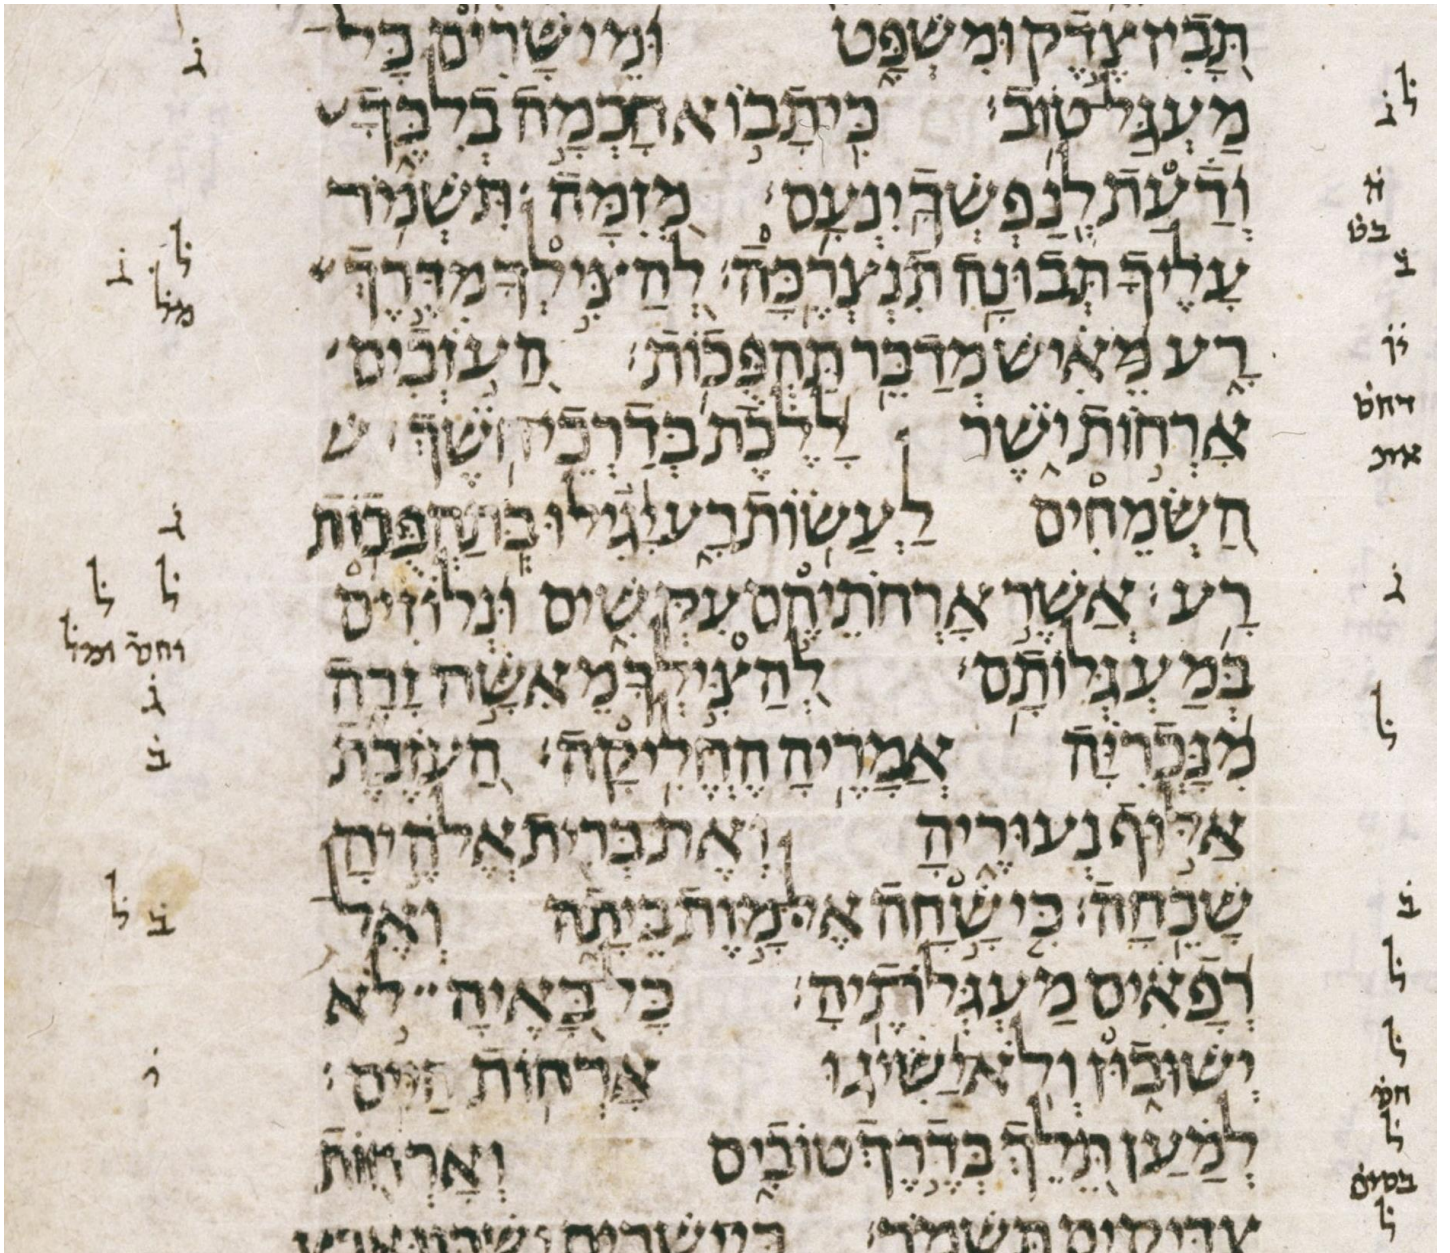 תָּבִין צֶדֶק וּמִשְׁפָּט וּמֵישָׁרִים כָּל
מַעְגַּל טוֹב׃ כִּי תָבוֹא חָכְמָה בְלִבֶּךָ
וְדַעַת לְנַפְשְׁךָ יִנְעָם׃ מְזִמָּה תִּשְׁמֹר
עָלֶיךָ תְּבוּנָה תִנְצְרֶכָּה׃ לְהַצִּילְךָ מִדֶּרֶךְ
רָע מֵאִישׁ מְדַבֵּר תַּהְפֻּכוֹת׃ הַעֹזְבִים
אָרְחוֹת יֹשֶׁר לָלֶכֶת בְּדַרְכֵי חֹשֶׁךְ׃
הַשְּׂמֵחִים לַעֲשׂוֹת רָע יָגִילוּ בְּתַהְפֻּכוֹת
רָע׃ אֲשֶׁר אָרְחֹתֵיהֶם עִקְּשִׁים וּנְלוֹזִים
בְּמַעְגְּלוֹתָם׃ לְהַצִּילְךָ מֵאִשָּׁה זָרָה
מִנָּכְרִיָּה אֲמָרֶיהָ הֶחֱלִיקָה׃ הַעֹזֶבֶת
אַלּוּף נְעוּרֶיהָ וְאֶת בְּרִית אֱלֹהֶיהָ
שָׁכֵחָה׃ כִּי שָׁחָה אֶל מָוֶת בֵּיתָהּ וְאֶל
רְפָאִים מַעְגְּלֹתֶיהָ׃ כָּל בָּאֶיהָ לֹא
יְשׁוּבוּן וְלֹא יַשִּׂיגוּ אָרְחוֹת חַיִּים׃
לְמַעַן תֵּלֵךְ בְּדֶרֶךְ טוֹבִים וְאָרְחוֹת
צַדִּיקִים תִּשְׁמֹר׃ כִּי יְשָׁרִים יִשְׁכְּנוּ אָרֶץ